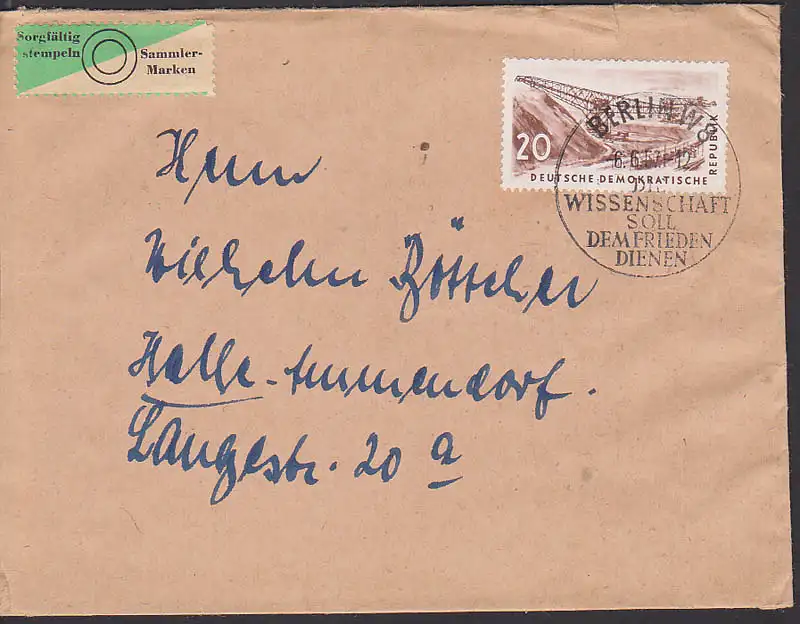 Sorgfältig
stempeln
Sammler-
Marken
20
DEUTSCHE DEMOKRATISCHE
REPUBLIK
BERLIN W8
6.6.57.-12
DIE
WISSENSCHAFT
SOLL
DEM FRIEDEN
DIENEN
Herrn
Wilhelm Böttcher
Halle-Ammendorf.
Langestr. 20 a